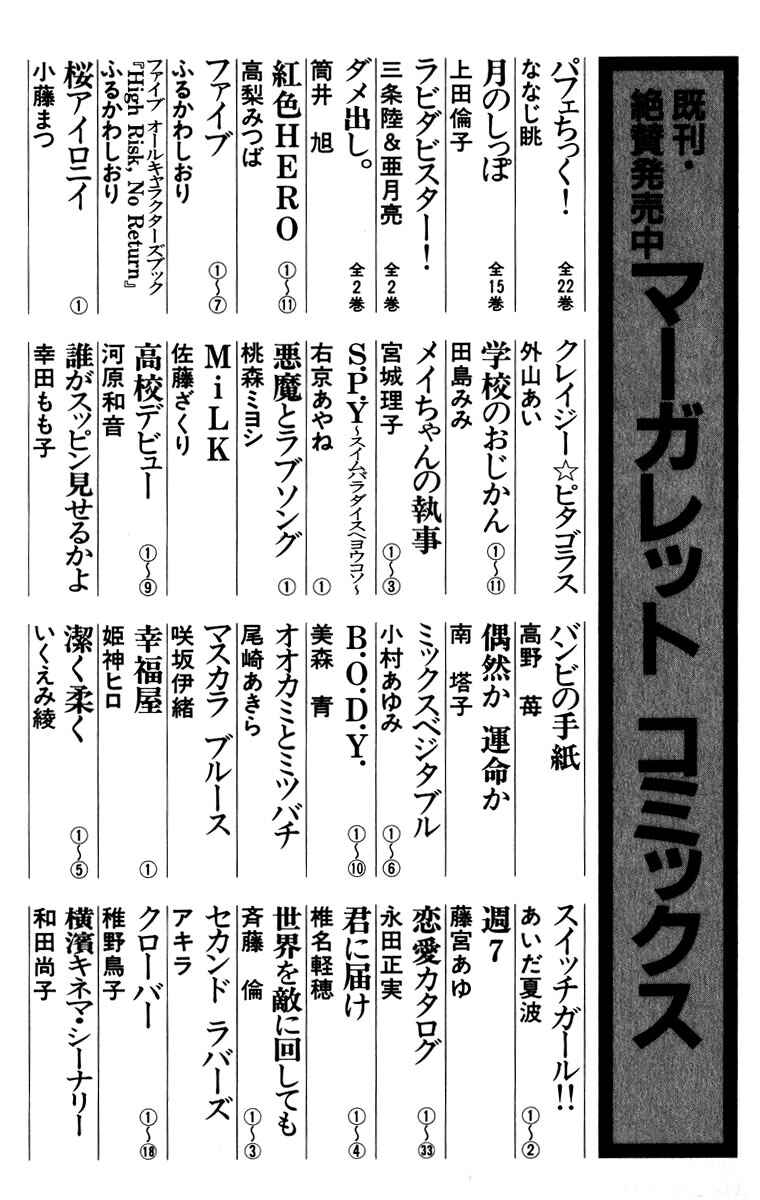 既刊・
絶賛発売中
マーガレット コミックス
パフェちっく！ 全22巻
ななじ眺
月のしっぽ 全15巻
上田倫子
ラビダビスター！ 全2巻
三条陸＆亜月亮
ダメ出し。 全2巻
筒井 旭
紅色HERO ①〜⑪
高梨みつば
ファイブ ①〜⑦
ふるかわしおり
ファイブ オールキャラクターズブック
『High Risk, No Return』
ふるかわしおり
桜アイロニイ ①
小藤まつ
クレイジー☆ピタゴラス
外山あい
学校のおじかん ①〜⑪
田島みみ
メイちゃんの執事 ①〜③
宮城理子
S.P.Y〜スイムパラダイスヘヨウコソ〜 ①
右京あやね
悪魔とラブソング ①
桃森ミヨシ
MiLK
佐藤ざくり
高校デビュー ①〜⑨
河原和音
誰がスッピン見せるかよ
幸田もも子
バンビの手紙
高野 苺
偶然か 運命か
南 塔子
ミックスベジタブル ①〜⑥
小村あゆみ
B.O.D.Y. ①〜⑩
美森 青
オオカミとミツバチ
尾崎あきら
マスカラ ブルース
咲坂伊緒
幸福屋 ①
姫神ヒロ
潔く柔く ①〜⑤
いくえみ綾
スイッチガール!! ①〜②
あいだ夏波
週7
藤宮あゆ
恋愛カタログ ①〜㉝
永田正実
君に届け ①〜④
椎名軽穂
世界を敵に回しても ①〜③
斉藤 倫
セカンド ラバーズ
アキラ
クローバー ①〜⑱
稚野鳥子
横濱キネマ・シーナリー
和田尚子